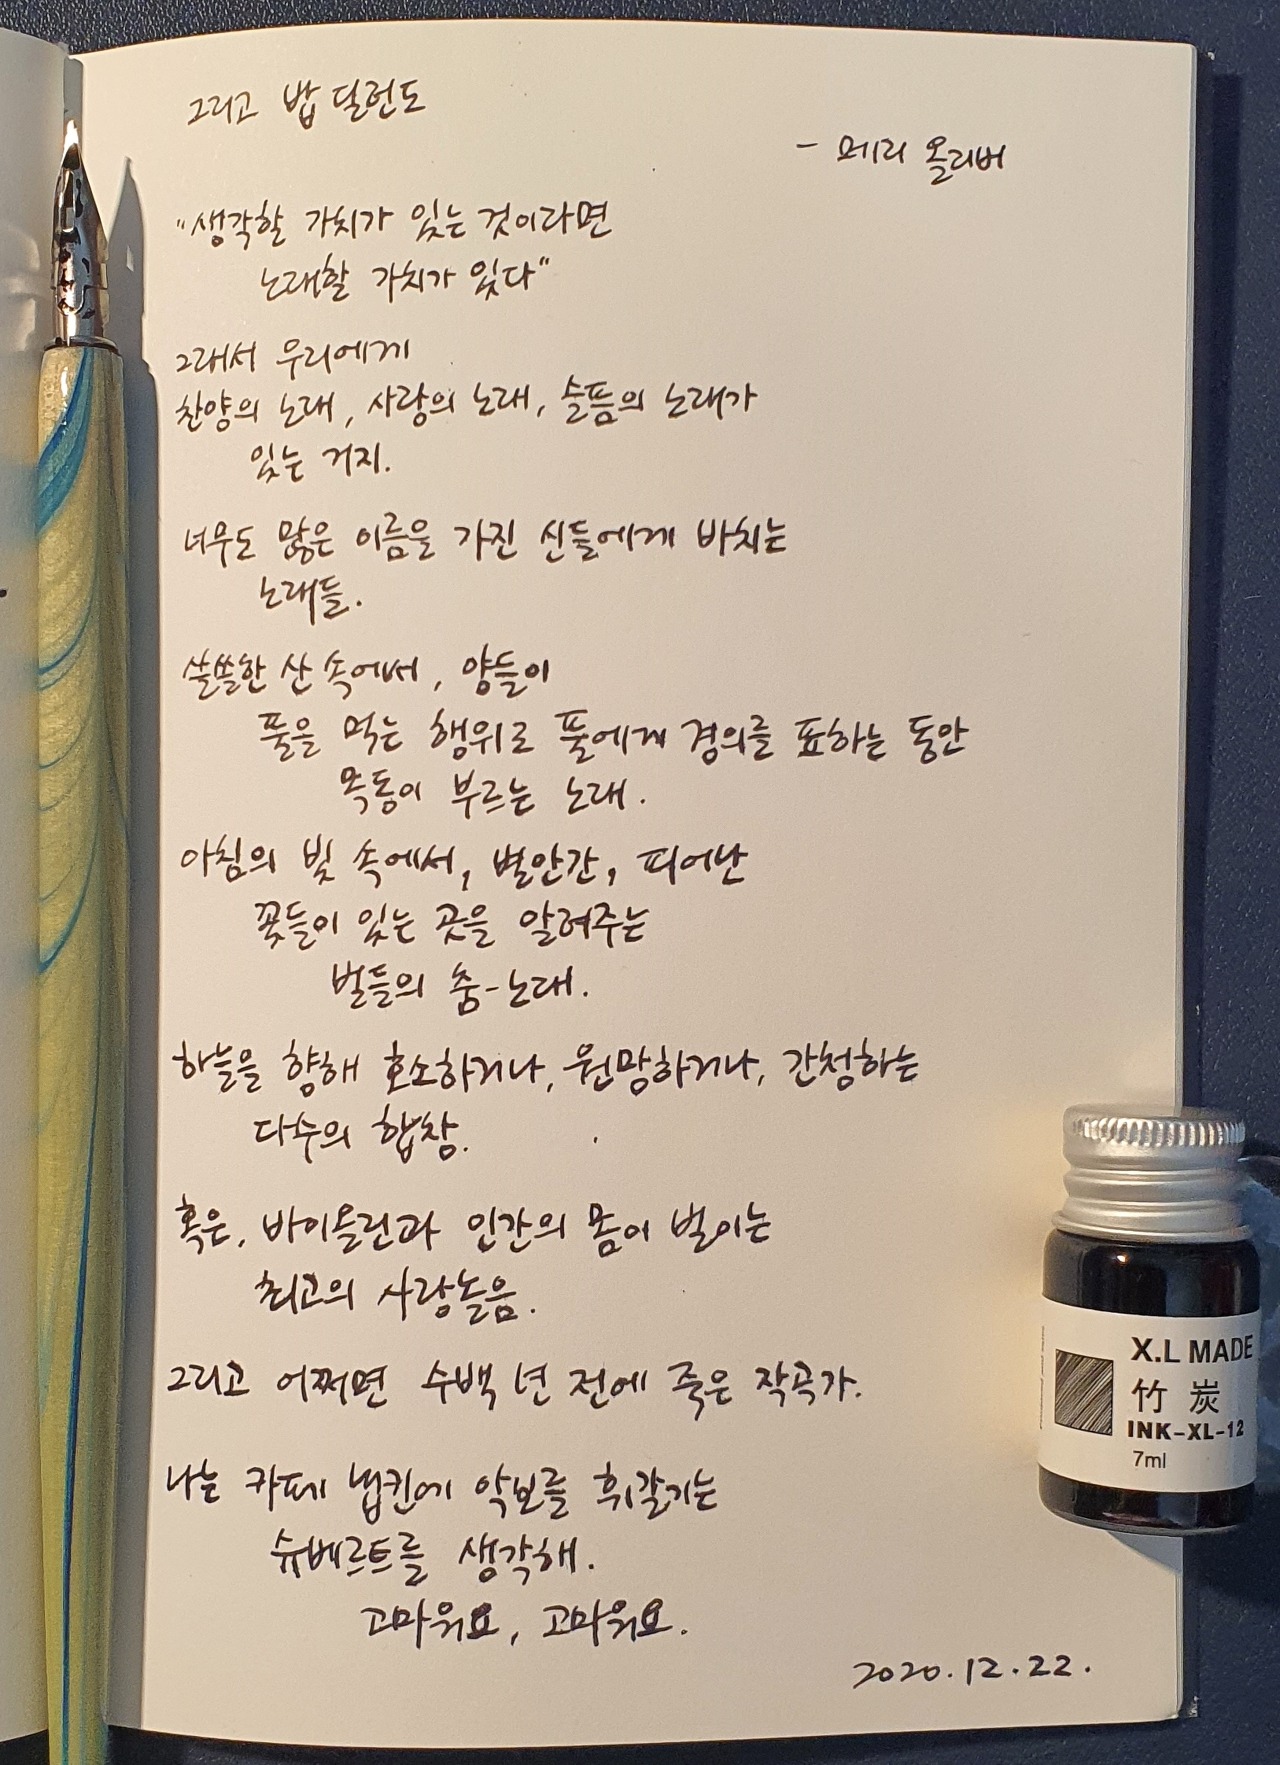 그리고 밥 딜런도
- 메리 올리버
"생각할 가치가 있는 것이라면
노래할 가치가 있다"
그래서 우리에게
찬양의 노래, 사랑의 노래, 슬픔의 노래가
있는 거지.
너무도 많은 이름을 가진 신들에게 바치는
노래들.
쓸쓸한 산 속에서, 양들이
풀을 먹는 행위로 풀에게 경의를 표하는 동안
목동이 부르는 노래.
아침의 빛 속에서, 별안간, 피어난
꽃들이 있는 곳을 알려주는
벌들의 춤-노래.
하늘을 향해 호소하거나, 원망하거나, 간청하는
다수의 합창.
혹은, 바이올린과 인간의 몸이 벌이는
최고의 사랑놀음.
그리고 어쩌면 수백 년 전에 죽은 작곡가.
나는 카페 냅킨에 악보를 휘갈기는
슈베르트를 생각해.
고마워요, 고마워요.
2020.12.22.
X.L MADE
竹 炭
INK-XL-12
7ml